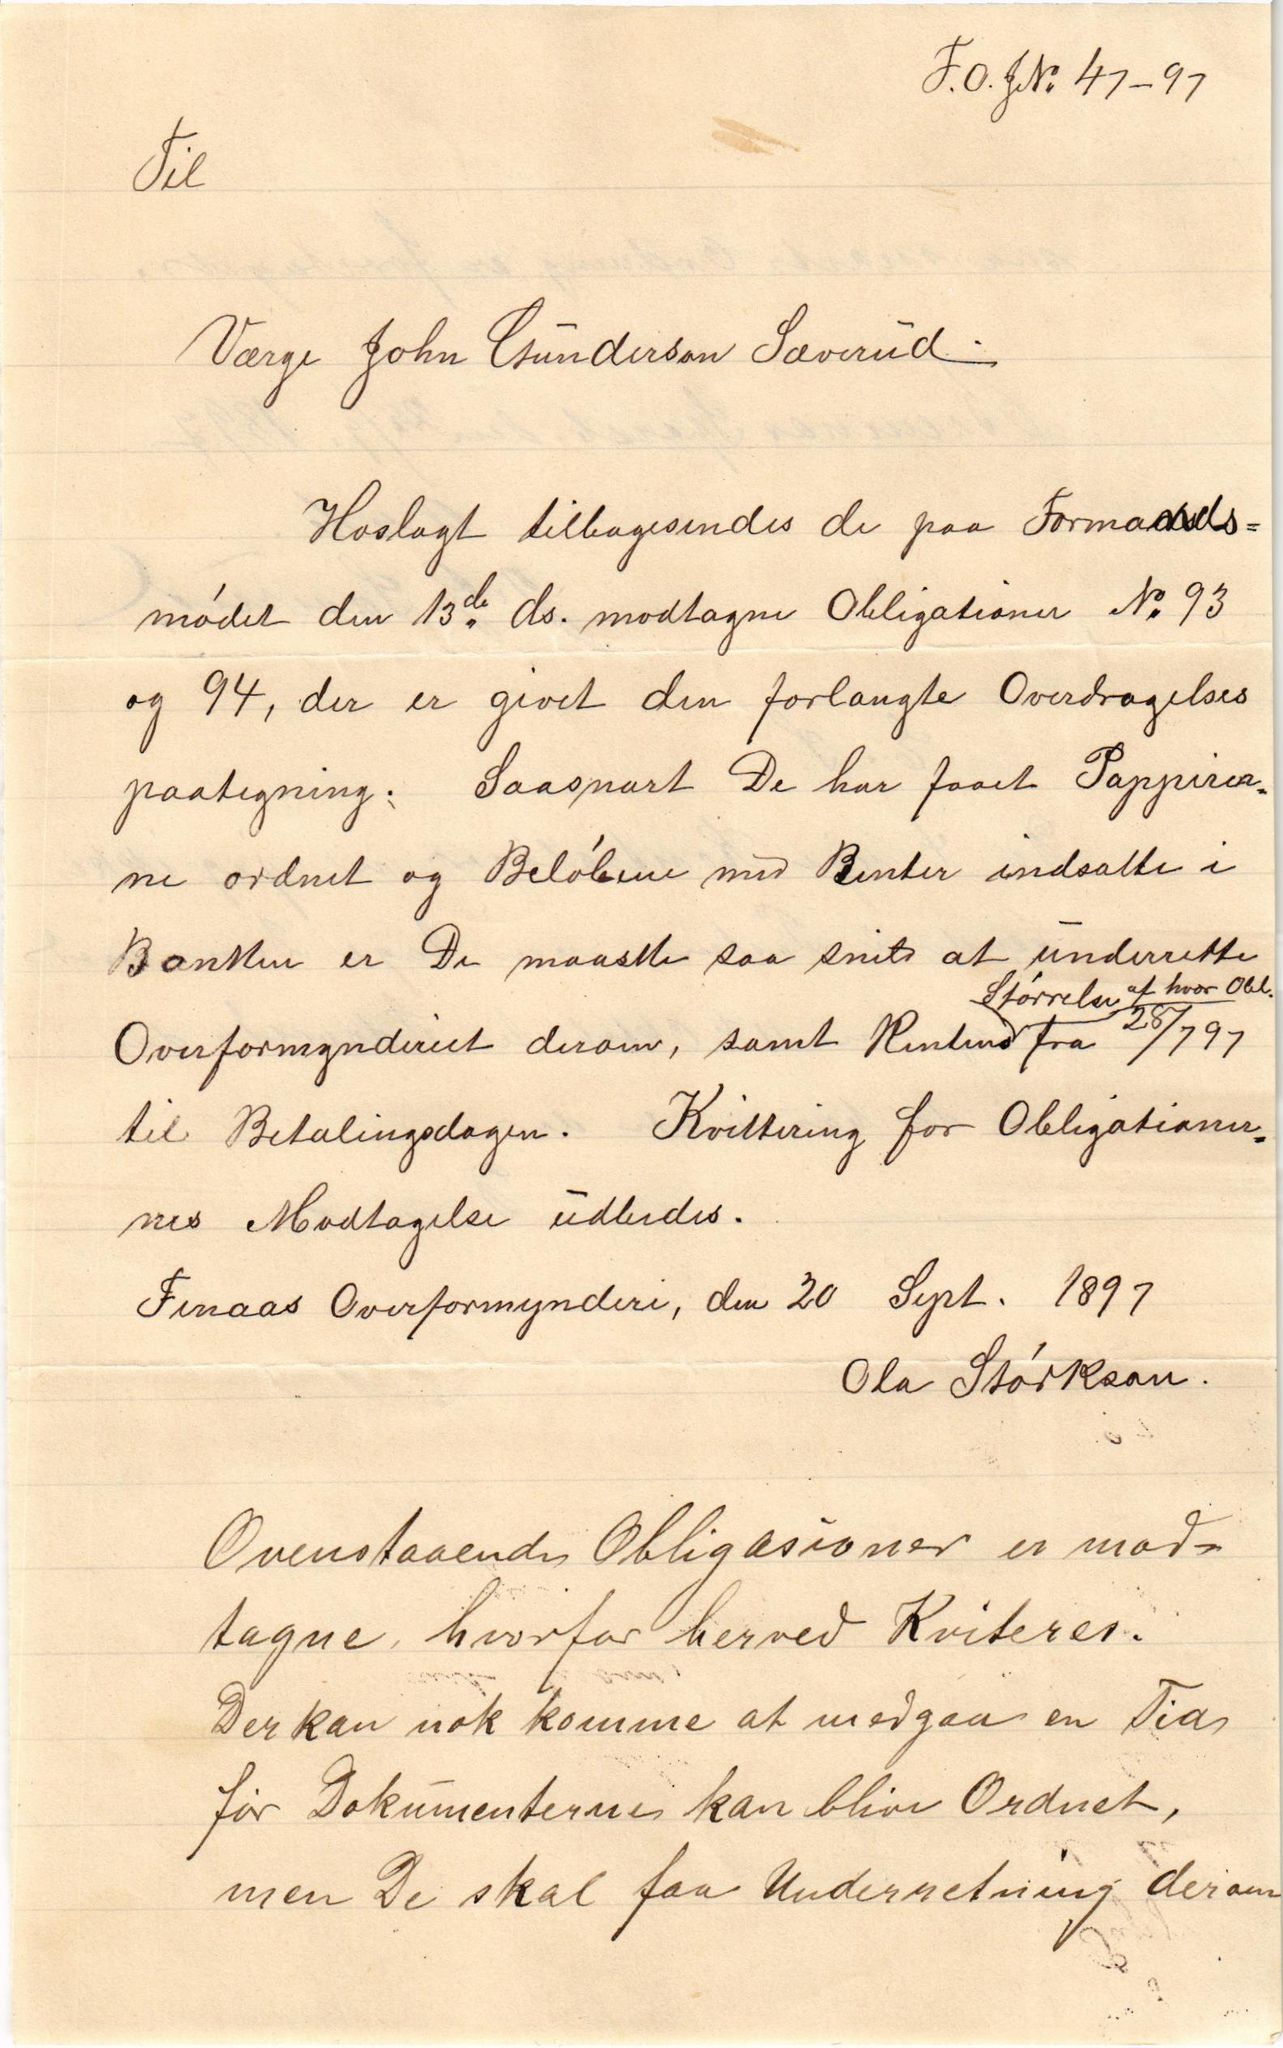 F.O. JN. 47-97
Til
Værge John Gunderson Sæverud.
Hoslagt tilbagesendes de paa Formands=
mødet den 13de ds. modtagne Obligationer No. 93
og 94, der er givet den forlangte Overdragelses
paategning. Saasnart De har faaet Pappirer=
ne ordnet og Beløbene med Renter indsatte i
Banken er De maaske saa snild at underrette
Størrelse af hver Obl.
Overformynderiet derom, samt Rentens fra 28/7 97
til Betalingsdagen. Kvittering for Obligationer=
nes Modtagelse udbedes.
Finaas Overformynderi, den 20 Sept. 1897
Ola Størkson.
Ovenstaaende Obligasioner er mod=
tagne, hvorfor herved Kviteres.
Der kan nok komme at medgaa en Tid
før Dokumenterne kan blive Ordnet,
men De skal faa Underretning derom